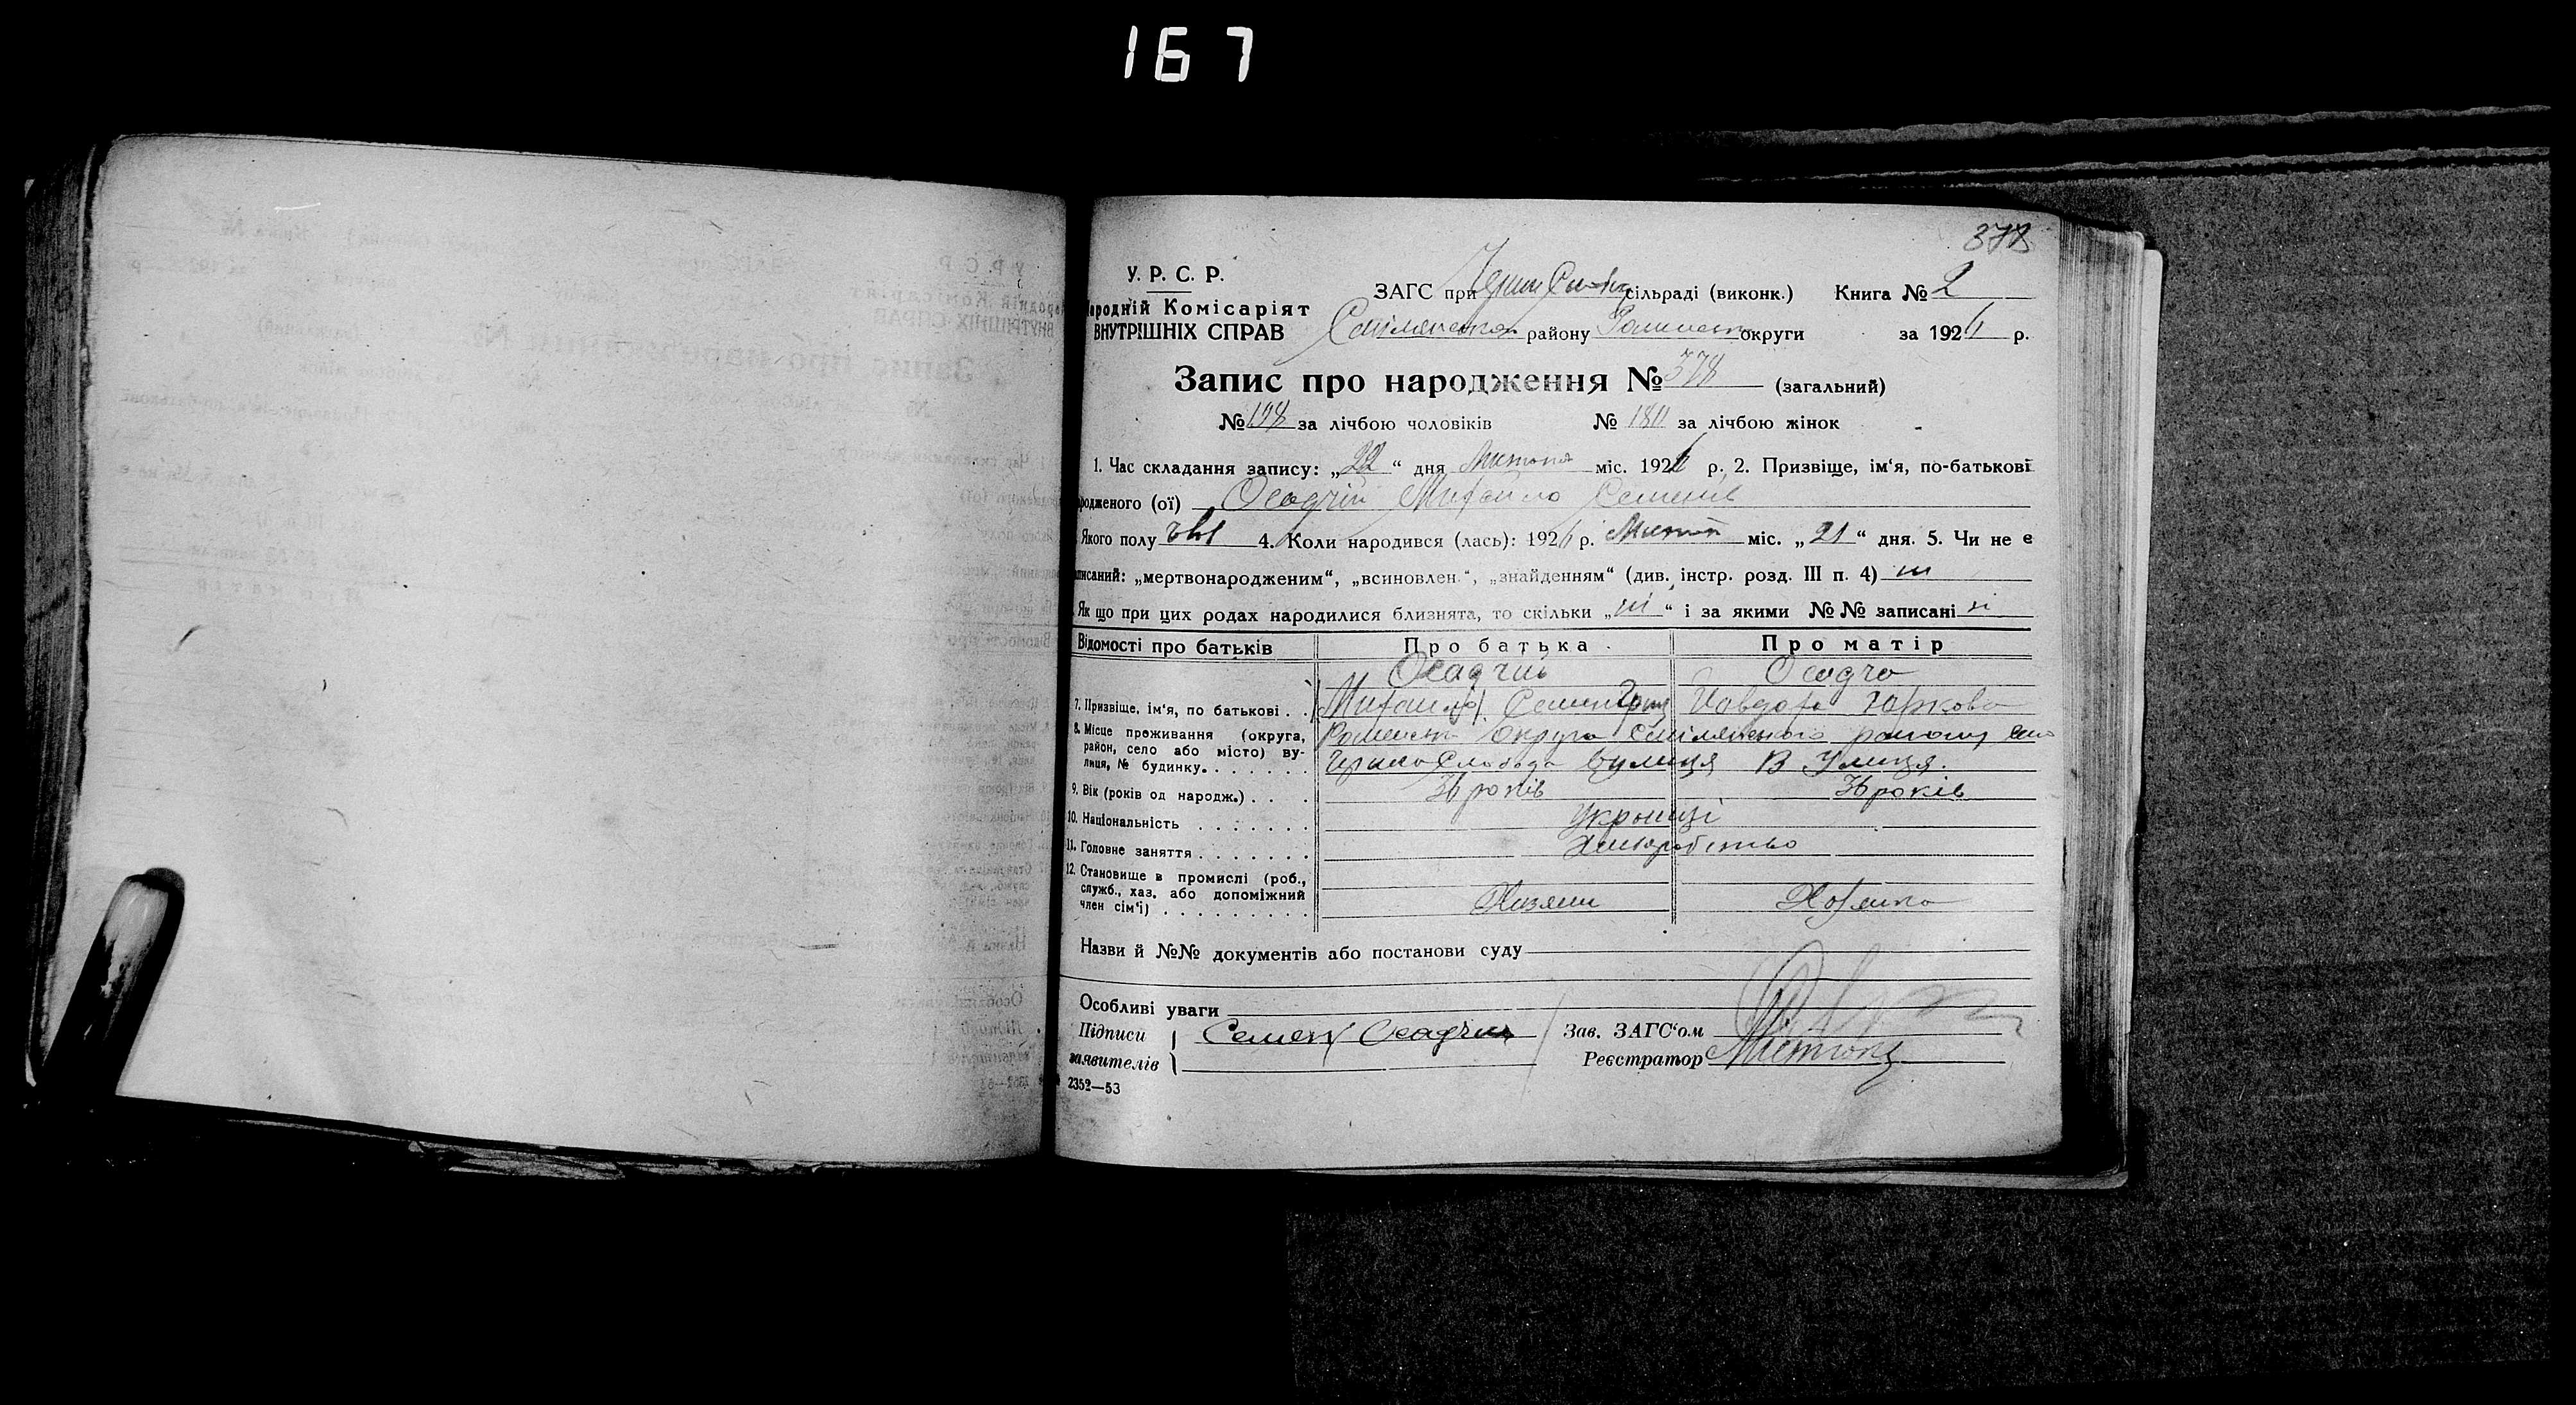 167
378
У. Р. С. Р.
Народній Комісаріят
ВНУТРІШНІХ СПРАВ
ЗАГС при сільраді (виконк.) Книга № 2
району округи за 1926 р.
Запис про народження № 378 (загальний)
№ 198 за лічбою чоловіків № 180 за лічбою жінок
1. Час складання запису: „22“ дня міс. 1926 р. 2. Призвіще, ім‘я, по-батькові
родженого (ої) Осадчій Михайло Семенів
Якого полу чол 4. Коли народився (лась): 1926 р. міс. „21“ дня. 5. Чи не є
писаний: „мертвонародженим“, „всиновлен.“, „знайденням“ (див. інстр. розд. III п. 4) ні
Як що при цих родах народилися близнята, то скільки „ні“ і за якими №№ записані ні
Відомості про батьків Про батька Про матір
Осадчий Осадча
7. Призвіще, ім‘я, по батькові . . Михайло Семен Явдоха
8. Місце проживання (округа, Роменська округа району село
район, село або місто) ву-
лиця, № будинку. . . . . . . Слобода вулиця В Улиця.
9. Вік (років од народж.) . . . 36 років 36 років
10. Національність . . . . . . . Українці
11. Головне заняття . . . . . . . Хліборобство
12. Становище в промислі (роб.,
служб., хаз. або допоміжний
член сім‘ї) . . . . . . . . . Хазяин Хазяйка
Назви й №№ документів або постанови суду
Особливі уваги
Підписи Семен Осадчий Зав. ЗАГС‘ом
заявителів Реєстратор
2352—53